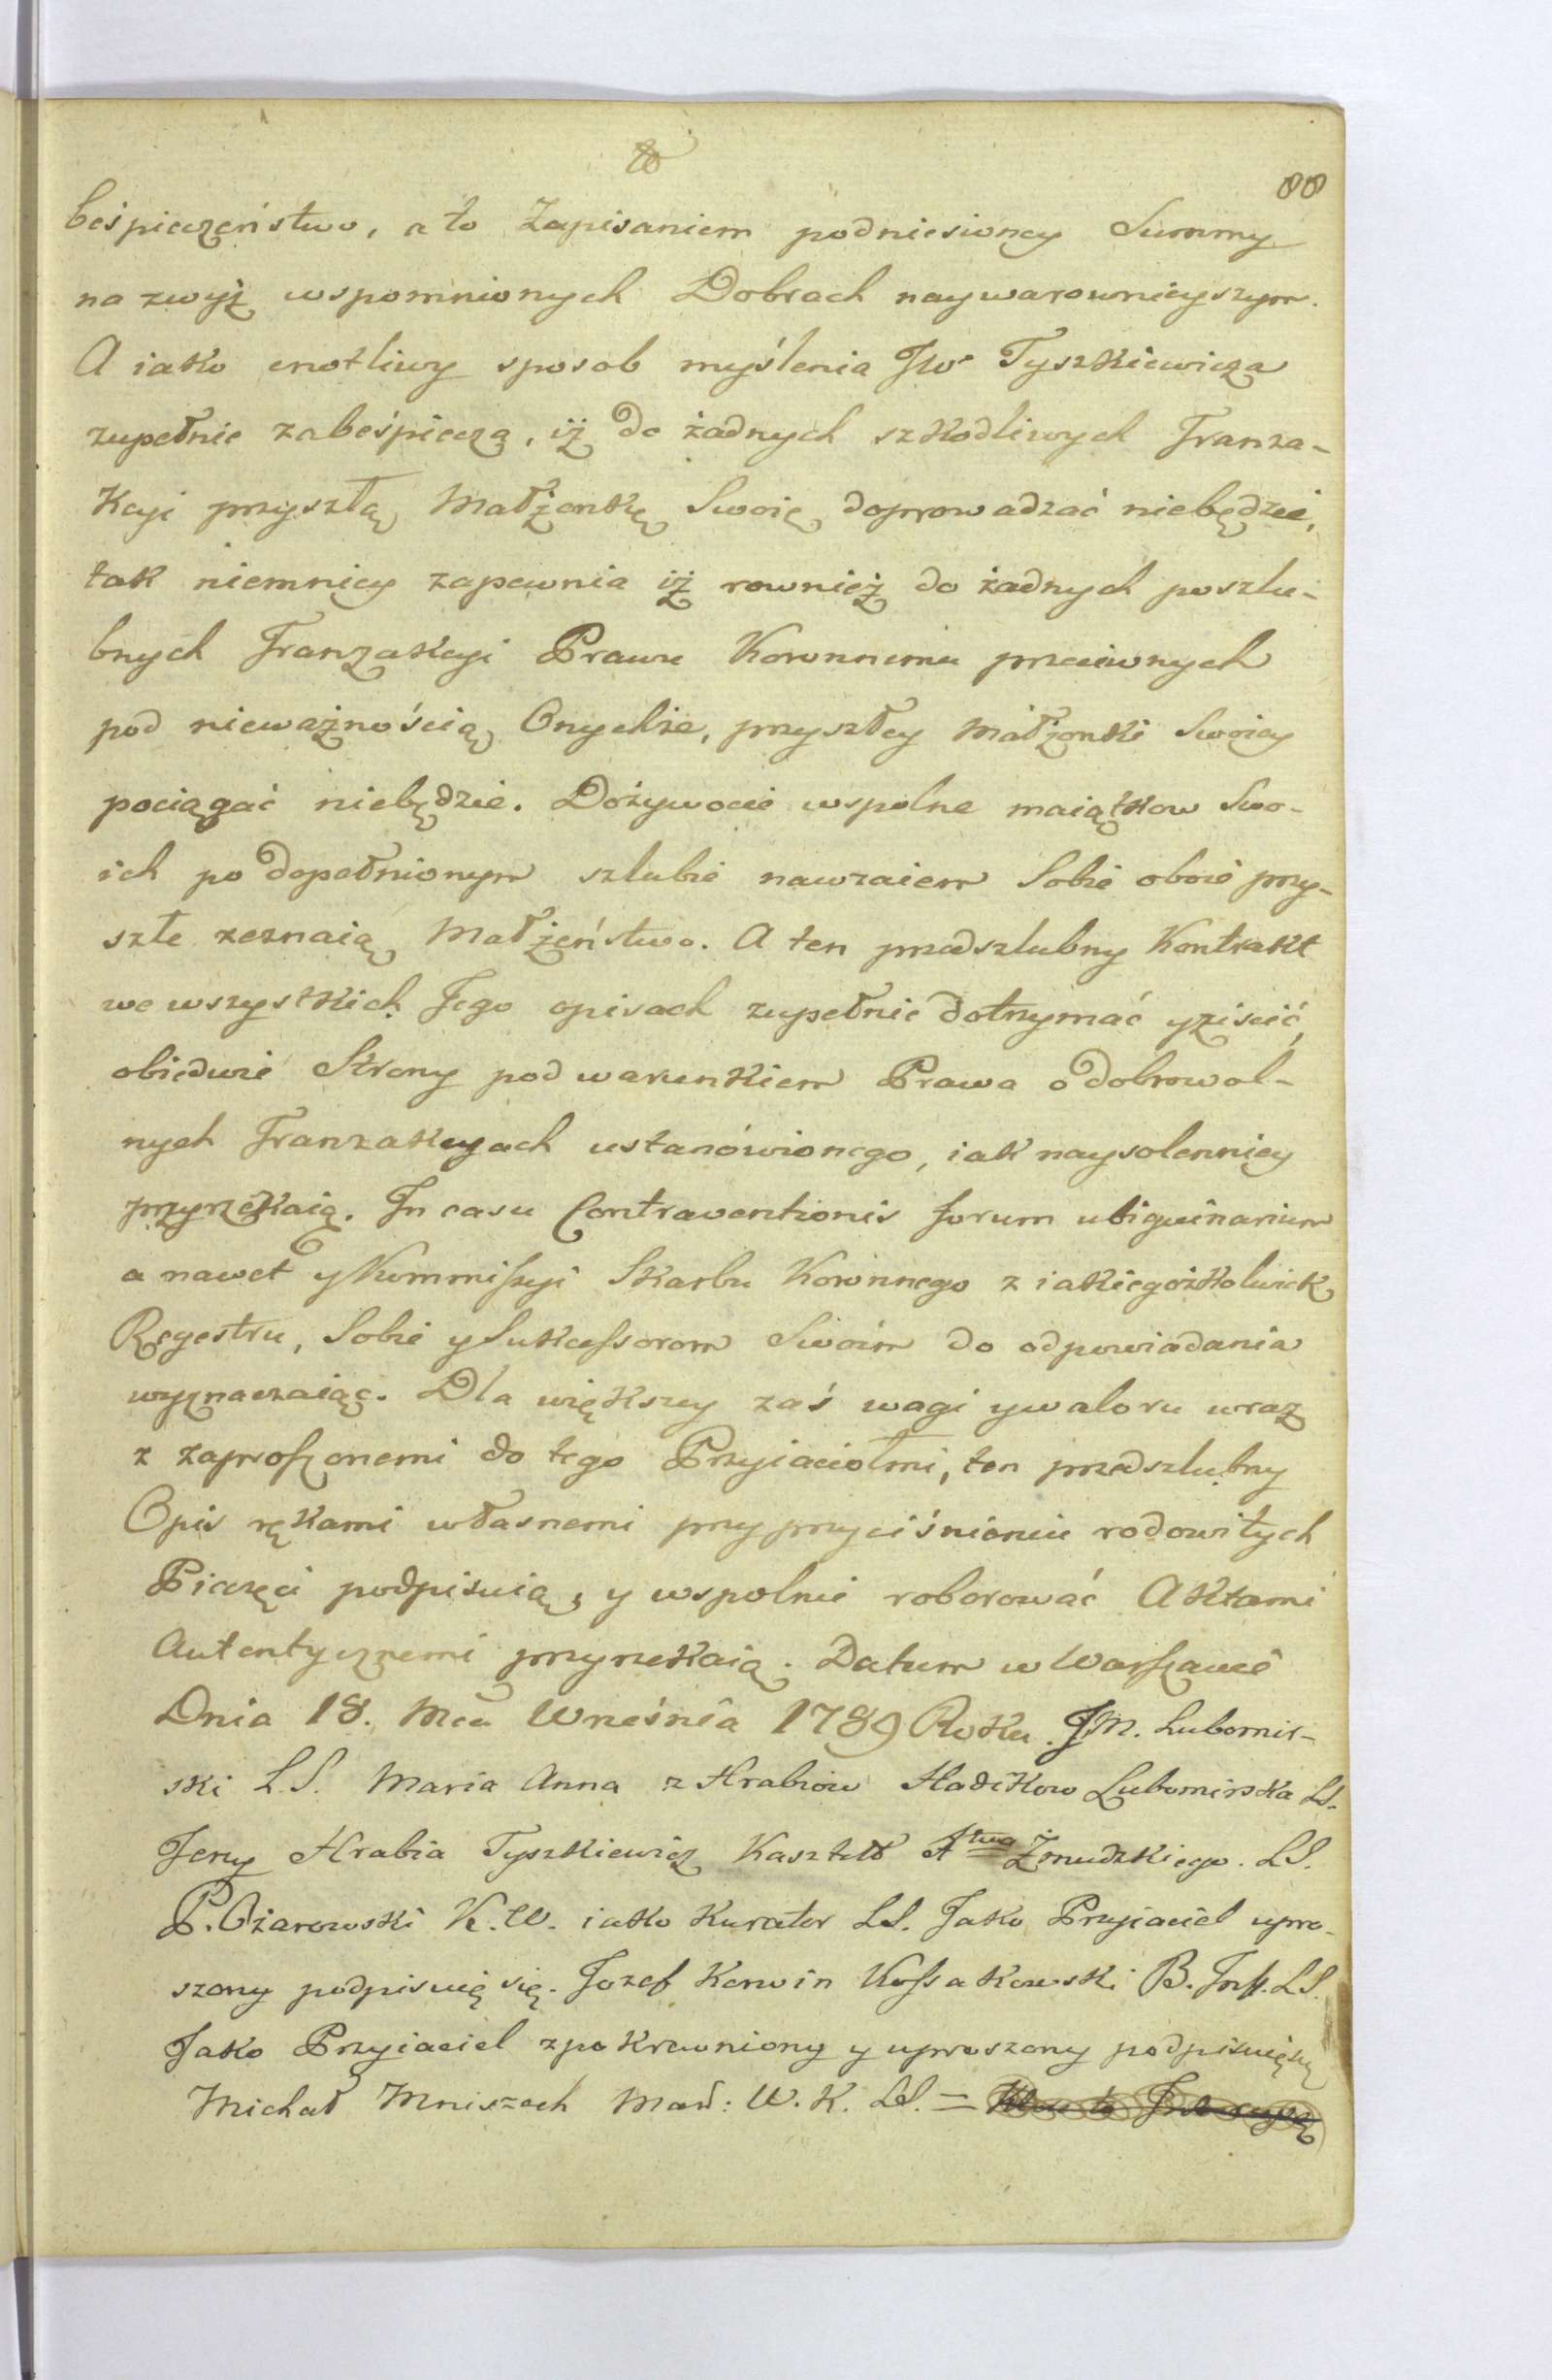 88
beśpieczeństwo, a to Zapisaniem podniesioney Summy
na zwyż wspomnionych Dobrach naywarownieyszym.
A iako cnotliwy sposob myślenia JW° Tyszkiewicza
zupełnie zabeśpiecza, iż do żadnych szkodliwych Tranza-
kcyi przyszłą Małżonkę Swoię doprowadzać niebędzie,
tak niemniey zapewnia iż rownież do żadnych poszlu-
bnych Tranzakcyi Prawu Koronnemu przeciwnych
pod nieważnością Onychże, przyszłey Małżonki Swoiey
pociągać niebędzie. Dożywocie wspolne maiątkow Swo-
ich po dopełnionym szlubie nawzaiem Sobie oboie przy-
szłe zeznaią Małżeństwo. A ten przedszlubny Kontrakt
we wszystkich Jego opisach zupełnie dotrzymać y ziścić,
obiedwie Strony pod warunkiem Prawa o dobrowol-
nych Tranzakcyach ustanówionego, iak naysolenniey
przyrzekaią. In casu Contraventionis forum ubiquinarium
a nawet y Kommissyi Skarbu Koronnego z iakiegożkolwiek
Regestru, Sobie y Sukcessorom Swoim do odpowiadania
wyznaczaiąc. Dla większey zaś wagi y waloru wraz
z zaproszonemi do tego Przyiaciołmi, ten przedszlubny
Opis rękami własnemi przy przyciśnieniu rodowitych
Pieczęci podpisuią, y wspolnie roborować Aktami
Autentycznemi przyrzekaią. Datum w Warszawie
Dnia 18. Mca Wrześnîa 1789 Roku. JM. Lubomir-
ski L.S. Maria Anna z Hrabiow Hadikow Lubomirska LS.
Jerzy Hrabia Tyszkiewicz Kasztel Xtwa Żmudzkiego. LS.
P. Ożarowski K. W. iako Kurator LS. Jako Przyiaciel upro-
szony podpisuię się. Jozef Korwin Kossakowski B. Infl. LS.
Jako Przyiaciel zpokrewniony y uproszony podpisuię się
Michał Mniszech Mar: W. K. LS. =